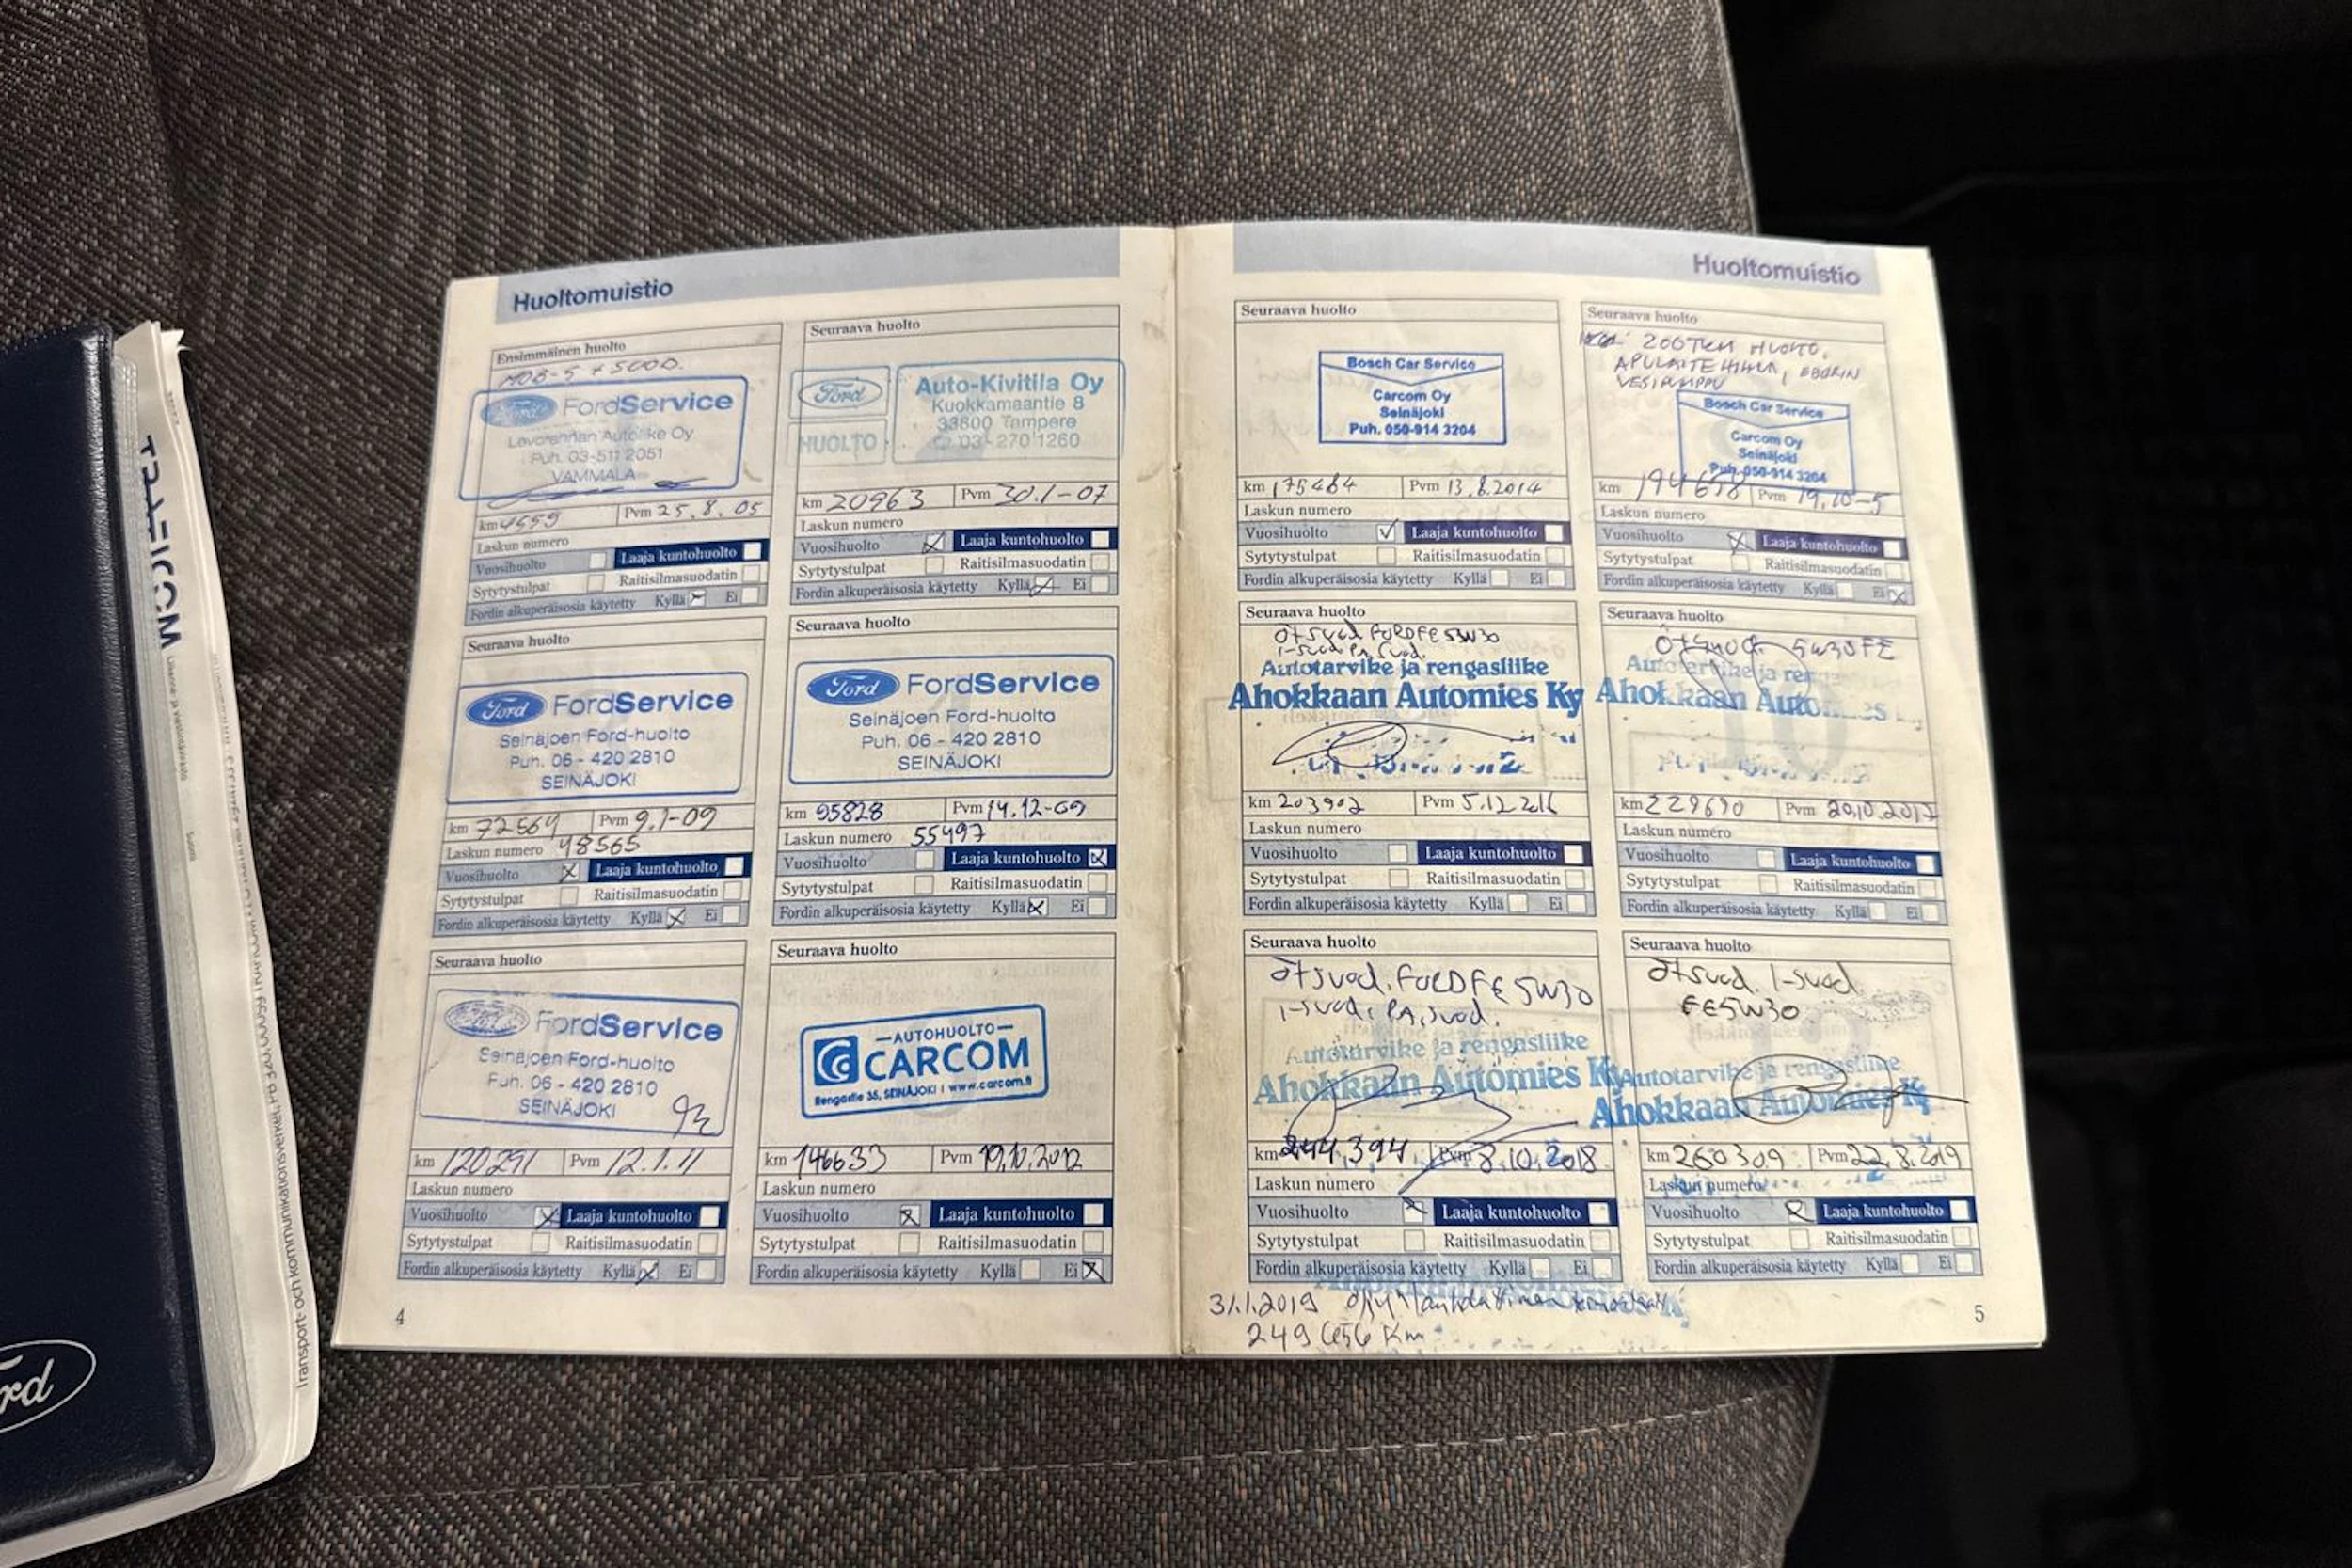 Huoltomuistio
Ensimmäinen huolto
Ford FordService
Puh. 03-511 2051
VAMMALA
km 4559 Pvm 25.8.05
Laskun numero
Vuosihuolto Laaja kuntohuolto
Sytytystulpat Raitisilmasuodatin
Fordin alkuperäisosia käytetty Kyllä Ei
Seuraava huolto
Ford Auto-Kivitila Oy
Kuokkamaantie 8
33800 Tampere
HUOLTO 03-270 1260
km 20963 Pvm 30.1-07
Laskun numero
Vuosihuolto Laaja kuntohuolto
Sytytystulpat Raitisilmasuodatin
Fordin alkuperäisosia käytetty Kyllä Ei
Seuraava huolto
Ford FordService
Seinäjoen Ford-huolto
Puh. 06 - 420 2810
SEINÄJOKI
km 72564 Pvm 9.1-09
Laskun numero 48565
Vuosihuolto Laaja kuntohuolto
Sytytystulpat Raitisilmasuodatin
Fordin alkuperäisosia käytetty Kyllä Ei
Seuraava huolto
Ford FordService
Seinäjoen Ford-huolto
Puh. 06 - 420 2810
SEINÄJOKI
km 95828 Pvm 14.12-09
Laskun numero 55497
Vuosihuolto Laaja kuntohuolto
Sytytystulpat Raitisilmasuodatin
Fordin alkuperäisosia käytetty Kyllä Ei
Seuraava huolto
FordService
Seinäjoen Ford-huolto
Puh. 06 - 420 2810
SEINÄJOKI
km 120291 Pvm 12.1.11
Laskun numero
Vuosihuolto Laaja kuntohuolto
Sytytystulpat Raitisilmasuodatin
Fordin alkuperäisosia käytetty Kyllä Ei
Seuraava huolto
AUTOHUOLTO
CARCOM
Rengastie 35, SEINÄJOKI | www.carcom.fi
km 146633 Pvm 19.10.2012
Laskun numero
Vuosihuolto Laaja kuntohuolto
Sytytystulpat Raitisilmasuodatin
Fordin alkuperäisosia käytetty Kyllä Ei
4
Huoltomuistio
Seuraava huolto
Bosch Car Service
Carcom Oy
Seinäjoki
Puh. 050-914 3204
km 175464 Pvm 13.8.2014
Laskun numero
Vuosihuolto Laaja kuntohuolto
Sytytystulpat Raitisilmasuodatin
Fordin alkuperäisosia käytetty Kyllä Ei
Seuraava huolto
200TKM HUOLTO,
APULAITEHIHNA,
VESIPUMPPU
Bosch Car Service
Carcom Oy
Seinäjoki
Puh. 050-914 3204
km Pvm 19.10-5
Laskun numero
Vuosihuolto Laaja kuntohuolto
Sytytystulpat Raitisilmasuodatin
Fordin alkuperäisosia käytetty Kyllä Ei
Seuraava huolto
ötsuod FORD FE 5W30
i-suod. PA, suod.
Autotarvike ja rengasliike
Ahokkaan Automies Ky
km 203902 Pvm 5.12.2016
Laskun numero
Vuosihuolto Laaja kuntohuolto
Sytytystulpat Raitisilmasuodatin
Fordin alkuperäisosia käytetty Kyllä Ei
Seuraava huolto
5W30FE
Autotarvike ja
Ahokkaan
km 229690 Pvm 20.10.2017
Laskun numero
Vuosihuolto Laaja kuntohuolto
Sytytystulpat Raitisilmasuodatin
Fordin alkuperäisosia käytetty Kyllä Ei
Seuraava huolto
ötsuod. FORD FE 5W30
i-suod, PA, suod.
Autotarvike ja rengasliike
Ahokkaan Automies Ky
km 244,394 Pvm 8.10.2018
Laskun numero
Vuosihuolto Laaja kuntohuolto
Sytytystulpat Raitisilmasuodatin
Fordin alkuperäisosia käytetty Kyllä Ei
Seuraava huolto
ötsuod. i-suod.
FE5W30
Autotarvike ja rengasliike
Ahokkaan Automies Ky
km 260309 Pvm 22.8.2019
Laskun numero
Vuosihuolto Laaja kuntohuolto
Sytytystulpat Raitisilmasuodatin
Fordin alkuperäisosia käytetty Kyllä Ei
31.1.2019
249 656 km
5